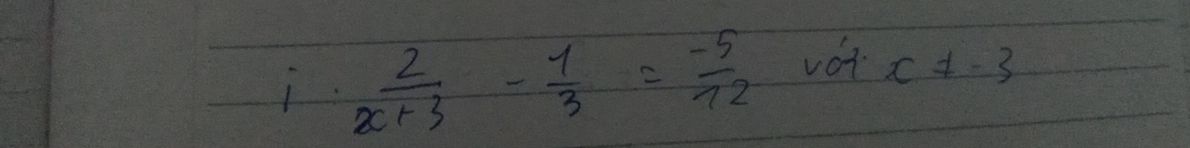 i. \frac{2}{x+3} - \frac{1}{3} = \frac{-5}{12} với x ≠ -3